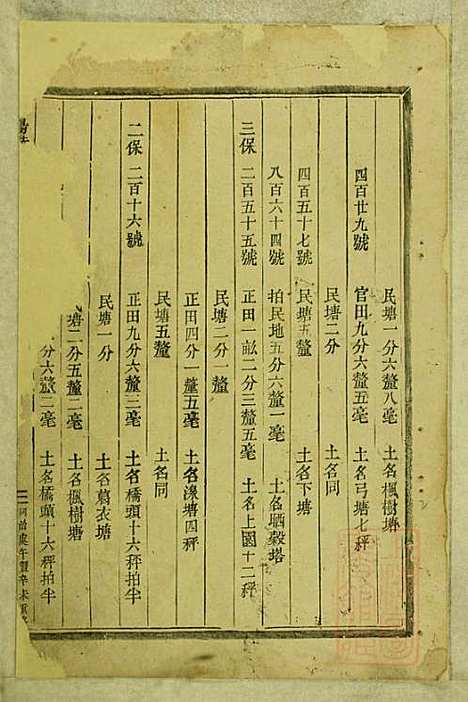 民塘一分六釐八毫 土名楓樹塘
四百廿九號 官田九分六釐五毫 土名弓塘七秤
民塘二分 土名同
四百五十七號 民塘五釐 土名下塘
八百六十四號 拍民地五分六釐一毫 土名晒穀塔
三保 二百五十五號 正田一畝二分三釐五毫 土名上園十二秤
民塘二分一釐
正田四分一釐五毫 土名湶塘四秤
民塘五釐 土名同
二保 二百十六號 正田九分六釐三毫 土名橋頭十六秤拍半
民塘一分 土名蓑衣塘
塘二分五釐二毫 土名楓樹塘
分六釐二毫 土名橋頭十六秤拍半
同治庚午